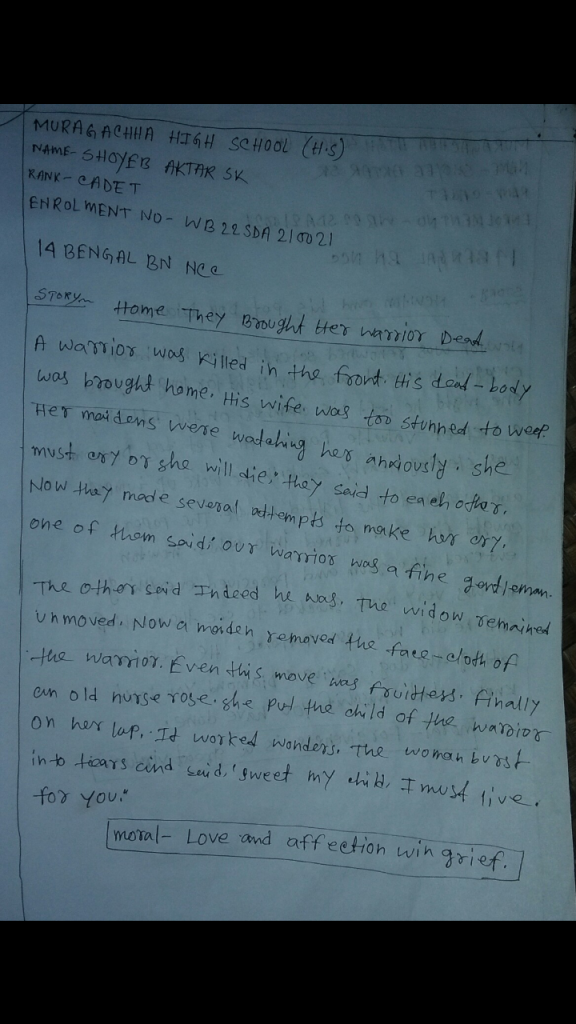 MURAGACHHA HIGH SCHOOL (H.S)
NAME- SHOYEB AKTAR SK
RANK- CADET
ENROLMENT NO- WB22SDA210021
14 BENGAL BN NCC
STORY- Home They Brought Her Warrior Dead
A warrior was killed in the front. His dead-body
was brought home. His wife was too stunned to weep.
Her maidens were watching her anxiously. she
must cry or she will die." they said to each other.
Now they made several attempts to make her cry.
one of them said; our warrior was a fine gentleman.
The other said Indeed he was. The widow remained
unmoved. Now a maiden removed the face-cloth of
the warrior. Even this move was fruitless. Finally
an old nurse rose. she put the child of the warrior
on her lap. It worked wonders. The woman burst
into tears and said, 'sweet my child, I must live.
for you."
moral- Love and affection win grief.